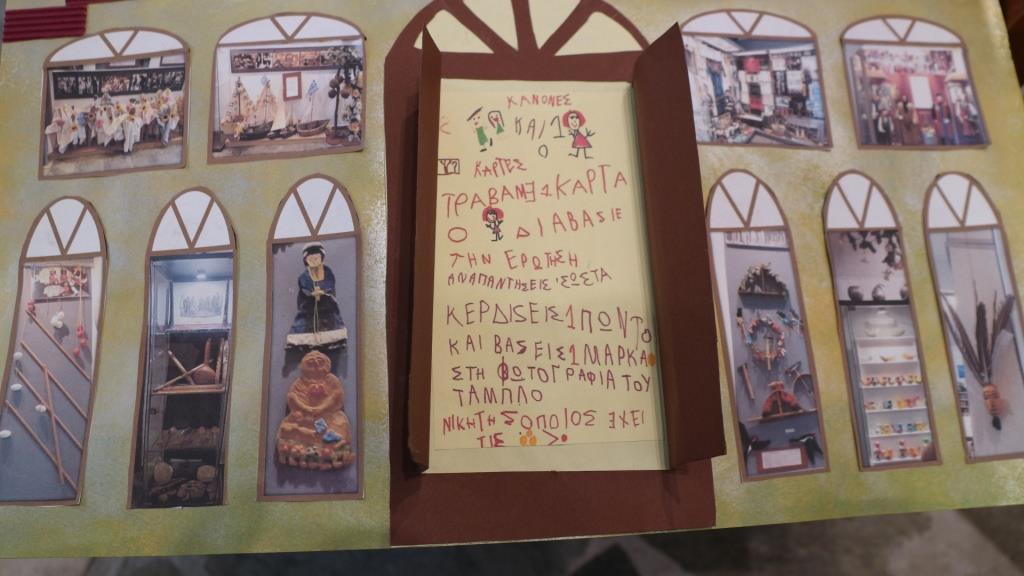 ΚΑΝΟΝΕΣ
2 ΚΑΙ 1
ΚΑΡΤΕΣ
ΤΡΑΒΑΜΕ 1 ΚΑΡΤΑ
Ο ΔΙΑΒΑΣΙΕ
ΤΗΝ ΕΡΩΤΗΣΗ
ΑΝ ΑΠΑΝΤΗΣΕΙΣ ΣΩΣΤΑ
ΚΕΡΔΙΣΕΙΣ 1 ΠΟΝΤΟ
ΚΑΙ ΒΑΣΕΙΣ 1 ΜΑΡΚΑ
ΣΤΗ ΦΩΤΟΓΡΑΦΙΑ ΤΟΥ
ΤΑΜΠΛΟ
ΝΙΚΗΤΗΣ ΟΠΟΙΟΣ ΕΧΕΙ
ΤΙΣ >